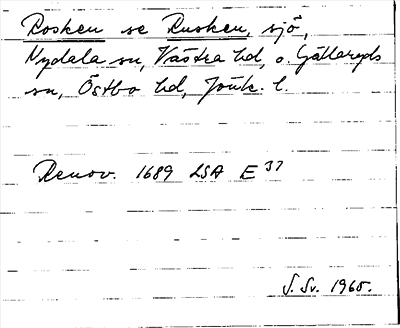 Rosken se Rusken, sjö,
Nydala sn, Västra hd, o. Gällaryds
sn, Östbo hd, Jönk. l.
Renov. 1689 LSA E 37
S. Sv. 1965.